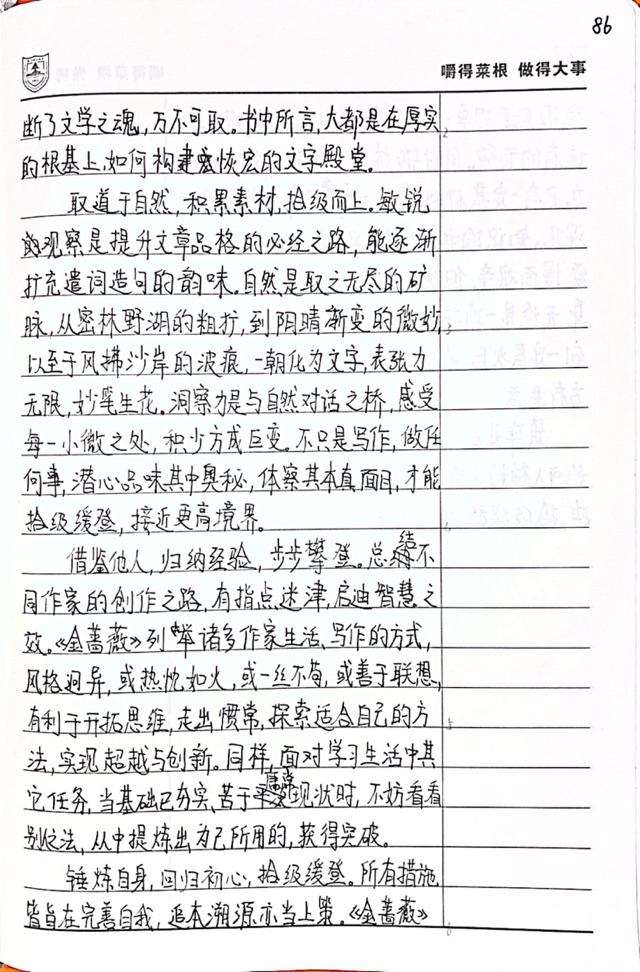 86
嚼得菜根 做得大事
断了文学之魂,万不可取。书中所言,大都是在厚实
的根基上,如何构建恢宏的文字殿堂。
取道于自然,积累素材,拾级而上。敏锐
观察是提升文章品格的必经之路,能逐渐
扩充遣词造句的韵味。自然是取之无尽的矿
脉,从密林野湖的粗犷,到阴晴渐变的微妙,
以至于风拂沙岸的波痕,一朝化为文字,表张力
无限,妙笔生花。洞察力是与自然对话之桥,感受
每一小微之处,积少方成巨变。不只是写作,做任
何事,潜心品味其中奥秘,体察其本真面目,才能
拾级缓登,接近更高境界。
借鉴他人,归纳经验,步步攀登。总结不
同作家的创作之路,有指点迷津,启迪智慧之
效。《金蔷薇》列举诸多作家生活、写作的方式,
风格迥异,或热忱如火,或一丝不苟,或善于联想,
有利于开拓思维,走出惯常,探索适合自己的方
法,实现超越与创新。同样,面对学习生活中其
它任务,当基础已夯实、苦于庸常现状时,不妨看看
别处法,从中提炼出为己所用的,获得突破。
锤炼自身,回归初心,拾级缓登。所有措施
皆旨在完善自我,追本溯源亦当上策。《金蔷薇》